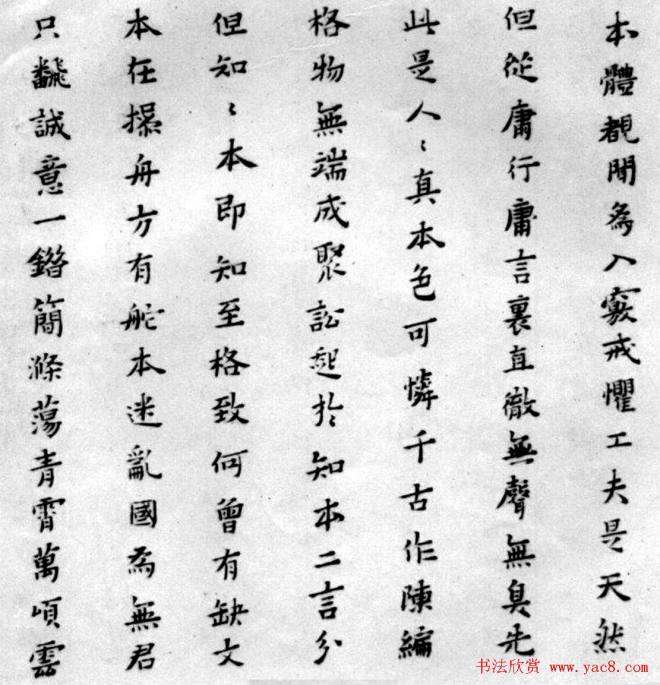 本體覩聞為入竅戒懼工夫是天然
但從庸行庸言裏直徹無聲無臭先
此是人〻真本色可憐千古作陳編
格物無端成聚訟起於知本二言分
但知〻本即知至格致何曾有缺文
本在操舟方有舵本迷亂國為無君
只飜誠意一錯簡滌蕩青霄萬頃雲
书法欣赏 www.yac8.com